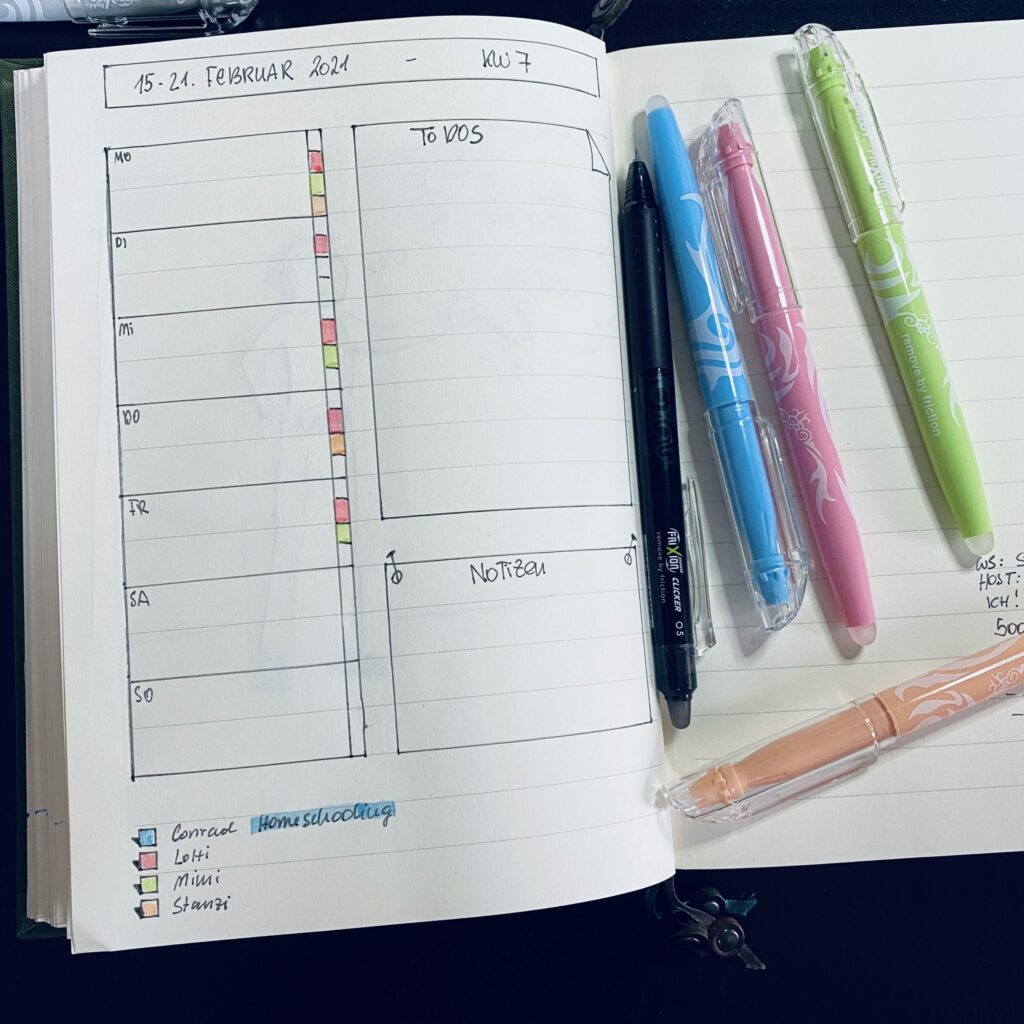 15-21. FEBRUAR 2021 - KW 7
MO
DI
MI
DO
FR
SA
SO
TO DOS
NOTIZEN
Conrad Homeschooling
Lotti
Mimi
Stanzi
FRIXION
CLICKER 0.5
remove by friction
remove by friction
WS: S
HOST:
ICH!
500